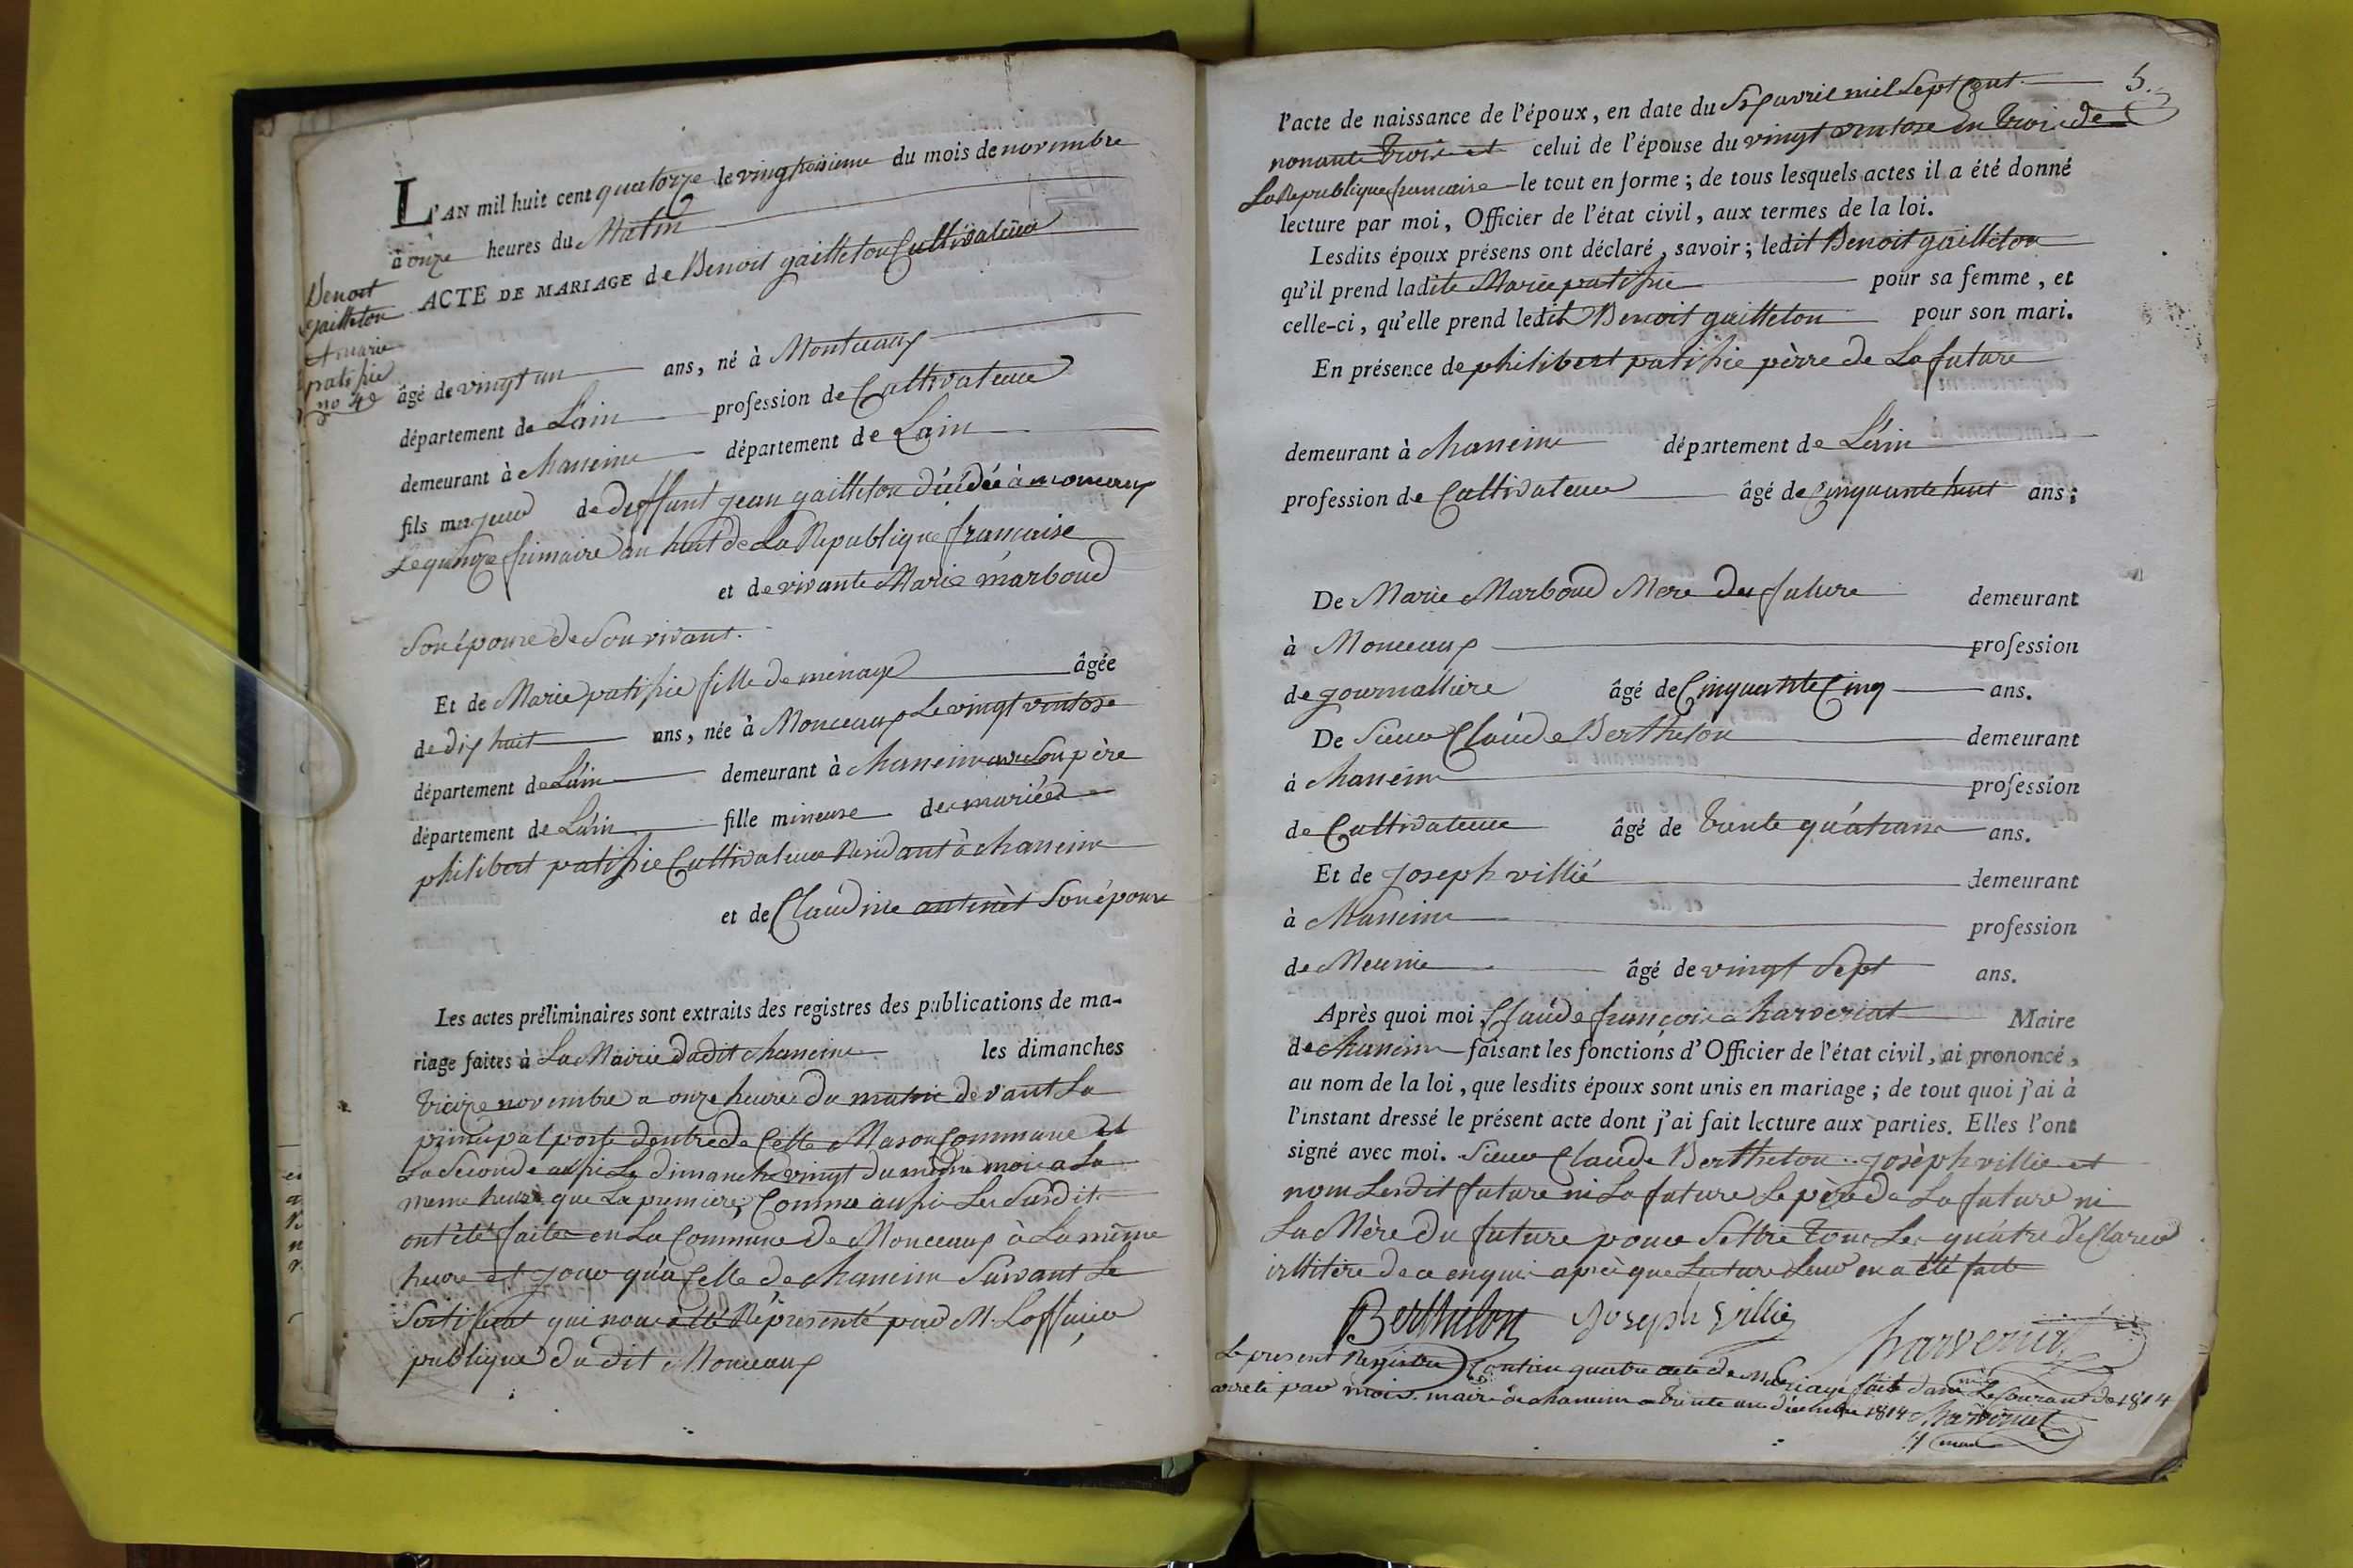 L'AN mil huit cent quatorze le vingtroisieme du mois de novembre
à onze heures du Matin
Benoit
gailleton
et marie
patissie
no 4e
ACTE DE MARIAGE de Benoit gailleton Cultivateur
âgé de vingt un ans, né à Montceaux
département de L'ain profession de Cultivateur
demeurant à chaneins département de Lain
fils majeur de deffunt jean gailleton décédée à monceaux
Le quinze frimaire an huit de La Republique francaise
et de vivante Marie marboud
Son épouse de Son vivant.
Et de Marie patissie fille de menage âgée
de dix huit ans, née à Monceaux Le vingt ventose
département de L'ain demeurant à chaneins avec Son père
département de L'ain fille mineure de mariées
philibert patissie Cultivateur Residant à chaneins
et de Claudine antenèt Son épouse
Les actes préliminaires sont extraits des registres des publications de ma-
riage faites à La Mairie dudit chaneins les dimanches
treize novembre a onze heures du matin devant La
principal porte dentre de Cette Maison Commune et
La Seconde aussi Le dimanche vingt du même mois a La
meme heure que La premiere; Comme aussi Les Susdit
ont été faites en La Commune de Monceaux à La même
heure et jour qu'a Celle de chaneins Suivant Le
Sertificat qui nous a été Répresenté par M. Lofficier
publique du dit Monceaux
5.
l'acte de naissance de l'époux, en date du Six avril mil Sept Cent
nonante trois et celui de l'épouse du vingt ventose an trois de
La Republique francaise le tout en forme; de tous lesquels actes il a été donné
lecture par moi, Officier de l'état civil, aux termes de la loi.
Lesdits époux présens ont déclaré, savoir; ledit Benoit gailleton
qu'il prend ladite Marie patissie pour sa femme, et
celle-ci, qu'elle prend ledit Benoit gailleton pour son mari.
En présence de philibert patissie pèrre de La future
demeurant à chaneins département de L'ain
profession de Cultivateur âgé de Cinquante huit ans;
De Marie Marboud Mere du future demeurant
à Monceaux profession
de journalliere âgé de Cinquante Cinq ans.
De Sieur Claude Berthelon demeurant
à chaneins profession
de Cultivateur âgé de trente quatre ans.
Et de Joseph villié demeurant
à chaneins profession
de Meunie âgé de vingt Sept ans.
Après quoi moi Claude françois charveriat Maire
de chaneins faisant les fonctions d'Officier de l'état civil, ai prononcé,
au nom de la loi, que lesdits époux sont unis en mariage; de tout quoi j'ai à
l'instant dressé le présent acte dont j'ai fait lecture aux parties. Elles l'ont
signé avec moi. Sieur Claude Berthelon Josèph villie et
nom Lesdit future ni La future Le père de La future ni
La Mère du future pour Settre tous Les quatre déClarer
illitere de ce enquis après que Lecture Leur en a été faite
Berthelon Joseph Villie
charveriat
Le present Registre Contien quatre acte de Mariage fait dans Le Courant de 1814
arreté par mois maire de chaneins a trente un décembre 1814 charveriat
maire